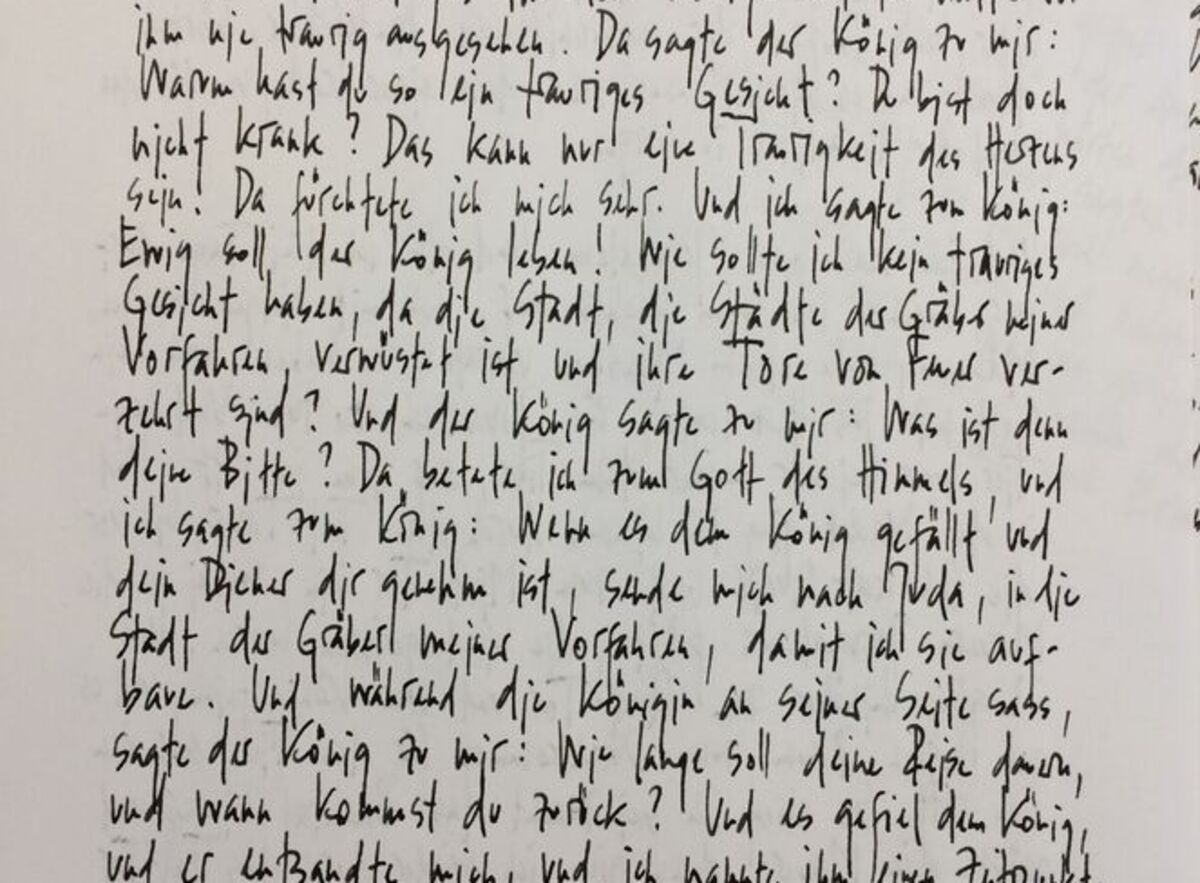 ihm nie traurig ausgesehen. Da sagte der König zu mir:
Warum hast du so ein trauriges Gesicht? Du bist doch
nicht krank? Das kann nur eine Traurigkeit des Herzens
sein! Da fürchtete ich mich sehr. Und ich sagte zum König:
Ewig soll der König leben! Wie sollte ich kein trauriges
Gesicht haben, da die Stadt, die Städte der Gräber meiner
Vorfahren, verwüstet ist und ihre Tore vom Feuer ver-
zehrt sind? Und der König sagte zu mir: Was ist denn
deine Bitte? Da betete ich zum Gott des Himmels, und
ich sagte zum König: Wenn es dem König gefällt und
dein Diener dir genehm ist, sende mich nach Juda, in die
Stadt der Gräber meiner Vorfahren, damit ich sie auf-
baue. Und während die Königin an seiner Seite sass,
sagte der König zu mir: Wie lange soll deine Reise dauern,
und wann kommst du zurück? Und es gefiel dem König,
und er entsandte mich, und ich nannte ihm einen Zeitpunkt.